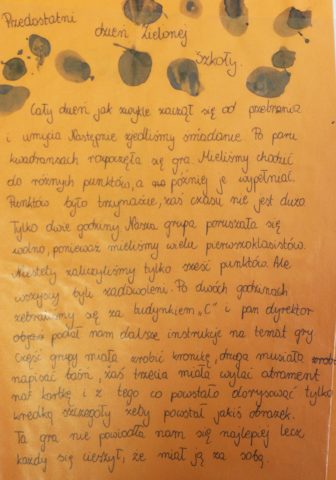 Przedostatni
dzień Zielonej
Szkoły.
Cały dzień jak zwykle zaczął się od przebrania
i umycia Następnie zjedliśmy śniadanie. Po paru
kwadransach rozpoczęła się gra. Mieliśmy chodzić
do różnych punktów, a później je wypełniać.
Punktów było trzynaście, zaś czasu nie jest dużo
Tylko dwie godziny Nasza grupa poruszała się
wolno, ponieważ mieliśmy wielu pierwszoklasistów.
Niestety zaliczyliśmy tylko sześć punktów. Ale
wszyscy byli zadowoleni. Po dwóch godzinach
zebraliśmy się za budynkiem „C" i pan dyrektor
podał nam dalsze instrukcje na temat gry
Część grupy miała zrobić kronikę, druga musiała zrobi
napisać baśń, zaś trzecia miała wylać atrament
na kartkę i z tego co powstało dorysować tylko
kredką szczegóły żeby powstał jakiś obrazek.
Ta gra nie powiodła nam się najlepiej lecz
każdy się cieszył, że miał ją za sobą